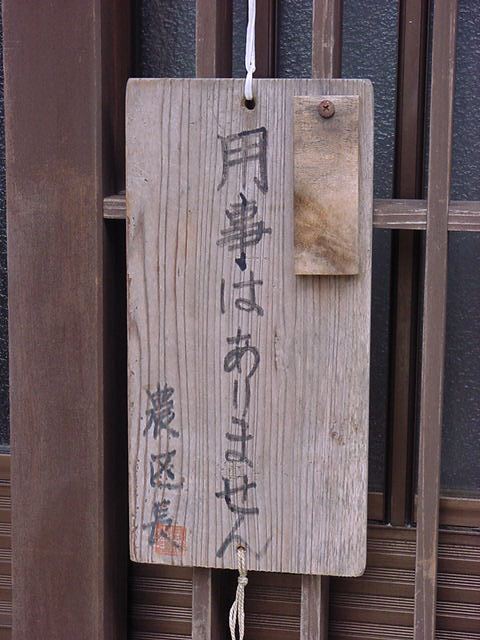 用事はありません
農区長